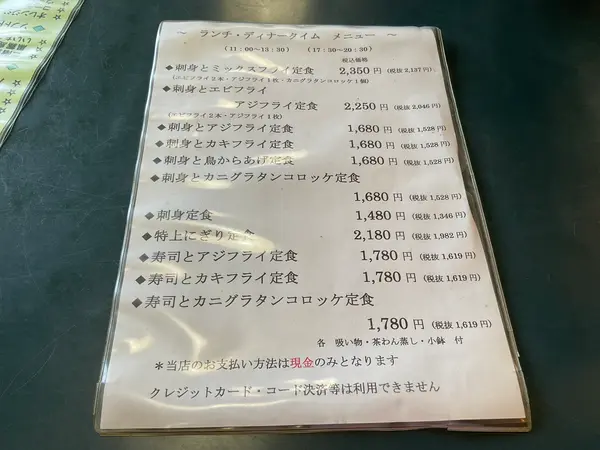 ～ ランチ・ディナータイム メニュー ～
(11:00～13:30) (17:30～20:30)
税込価格
◆刺身とミックスフライ定食 2,350円 (税抜 2,137円)
(エビフライ2本・アジフライ1枚・カニグラタンコロッケ1個)
◆刺身とエビフライ
アジフライ定食 2,250円 (税抜 2,046円)
(エビフライ2本・アジフライ1枚)
◆刺身とアジフライ定食 1,680円 (税抜 1,528円)
◆刺身とカキフライ定食 1,680円 (税抜 1,528円)
◆刺身と鳥からあげ定食 1,680円 (税抜 1,528円)
◆刺身とカニグラタンコロッケ定食
1,680円 (税抜 1,528円)
◆刺身定食 1,480円 (税抜 1,346円)
◆特上にぎり定食 2,180円 (税抜 1,982円)
◆寿司とアジフライ定食 1,780円 (税抜 1,619円)
◆寿司とカキフライ定食 1,780円 (税抜 1,619円)
◆寿司とカニグラタンコロッケ定食
1,780円 (税抜 1,619円)
各 吸い物・茶わん蒸し・小鉢 付
＊当店のお支払い方法は現金のみとなります
クレジットカード・コード決済等は利用できません